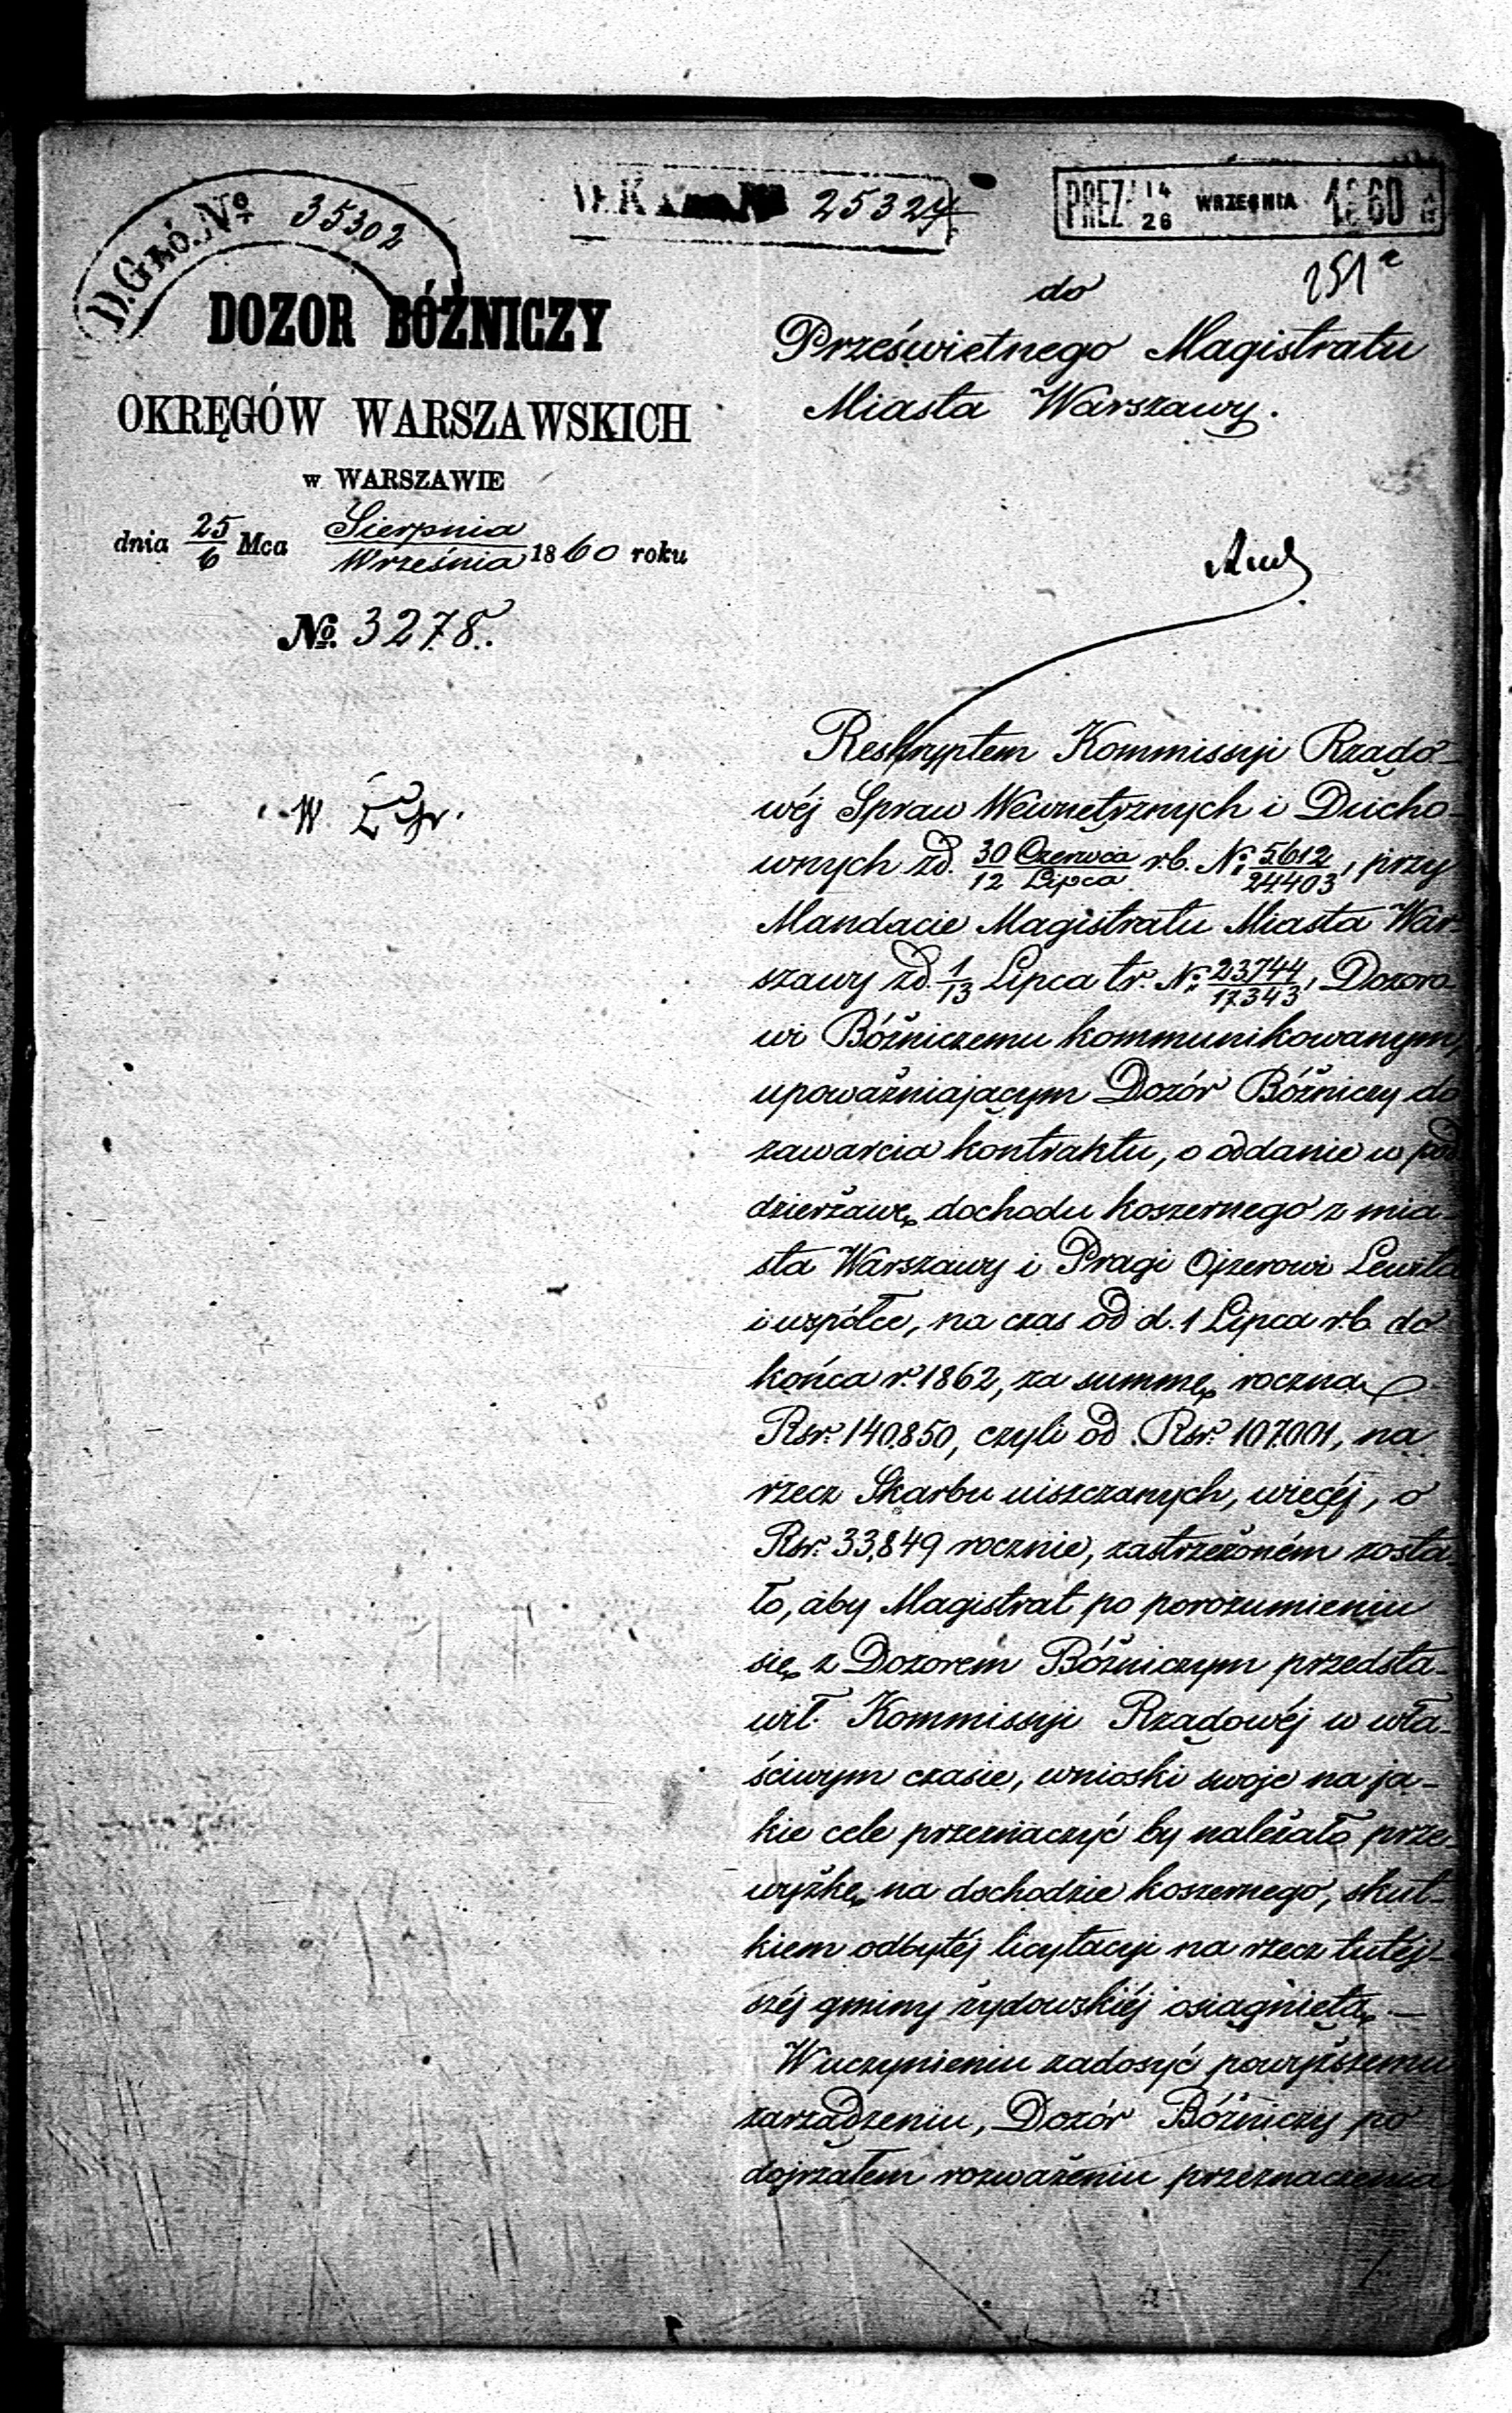 D. Głó. No 35302
25324
PREZ. 14/26 WRZEŚNIA 1860
251
DOZOR BÓŻNICZY
OKRĘGÓW WARSZAWSKICH
w WARSZAWIE
dnia 25/6 Mca Sierpnia/Września 1860 roku
No. 3278.
do
Prześwietnego Magistratu
Miasta Warszawy.
Reskryptem Kommissyi Rządo-
wéj Spraw Wewnętrznych i Ducho-
wnych zd. 30/12 Czerwca/Lipca rb. No 5612/24403, przy
Mandacie Magistratu Miasta War-
szawy zd. 1/13 Lipca tr. No 23744/17343, Dozoro-
wi Bóżniczemu kommunikowanym,
upoważniającym Dozór Bóżniczy do
zawarcia kontraktu, o oddanie w pod
dzierżawę dochodu koszernego z mia-
sta Warszawy i Pragi Ojzerowi Lewita
i wspólce, na czas od d. 1 Lipca rb. do
końca r. 1862, za summę roczną
Rsr. 140,850, czyli od Rsr. 107,001, na
rzecz Skarbu uiszczanych, więcéj, o
Rsr. 33,849 rocznie, zastrzeżoném zosta
ło, aby Magistrat po porozumieniu
się z Dozorem Bóżniczym przedsta-
wił Kommissyi Rządowéj w wła-
ściwym czasie, wnioski swoje na ja-
kie cele przeznaczyć by należało prze-
wyżkę na dochodzie koszernego, skut-
kiem odbytéj licytacyi na rzecz tutéj-
széj gminy żydowskiéj osiągniętą. —
W uczynieniu zadosyć powyższemu
zarządzeniu, Dozór Bóżniczy po
dojrzałem rozważeniu przeznaczenia